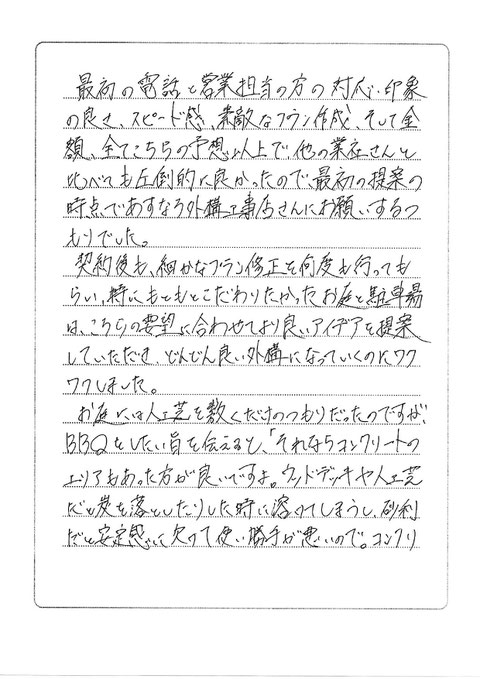 最初の電話と営業担当の方の対応、印象
の良さ、スピード感、素敵なプラン作成、そして金
額、全てこちらの予想以上で、他の業社さんと
比べても圧倒的に良かったので、最初の提案の
時点であすなろ外構工事店さんにお願いするつ
もりでした。
契約後も、細かなプラン修正を何度も行っても
らい、特にもともとこだわりたかったお庭と駐車場
は、こちらの要望に合わせてより良いアイデアを提案
していただき、どんどん良い外構になっていくのにワク
ワクしました。
お庭には人工芝を敷くだけのつもりだったのですが、
BBQをしたい旨を伝えると、「それならコンクリートの
エリアもあった方が良いですよ。ウッドデッキや人工芝
だと炭を落としたりした時に溶けてしまうし、砂利
だと安定感に欠けて使い勝手が悪いので。コンクリ